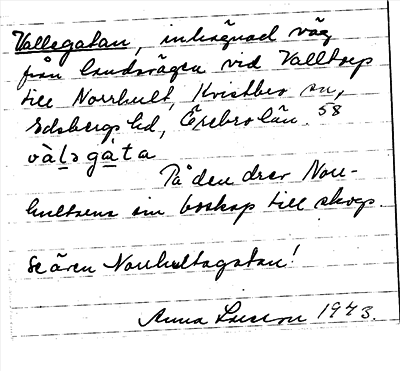 Vallegatan, inhägnad väg
från landsvägen vid Valltorp
till Norrhult, Kvistbro sn,
Edsbergs hd, Örebro län. 58
vàl̠ə gáta
På den drev Norr-
hultarna sin boskap till skogs.
Se även Norrhultagatan!
Anna Larsson 1943.